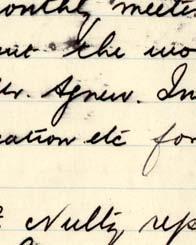 onthly meeti
the wo
r. Agnew. In
cation etc for
Nulty rep